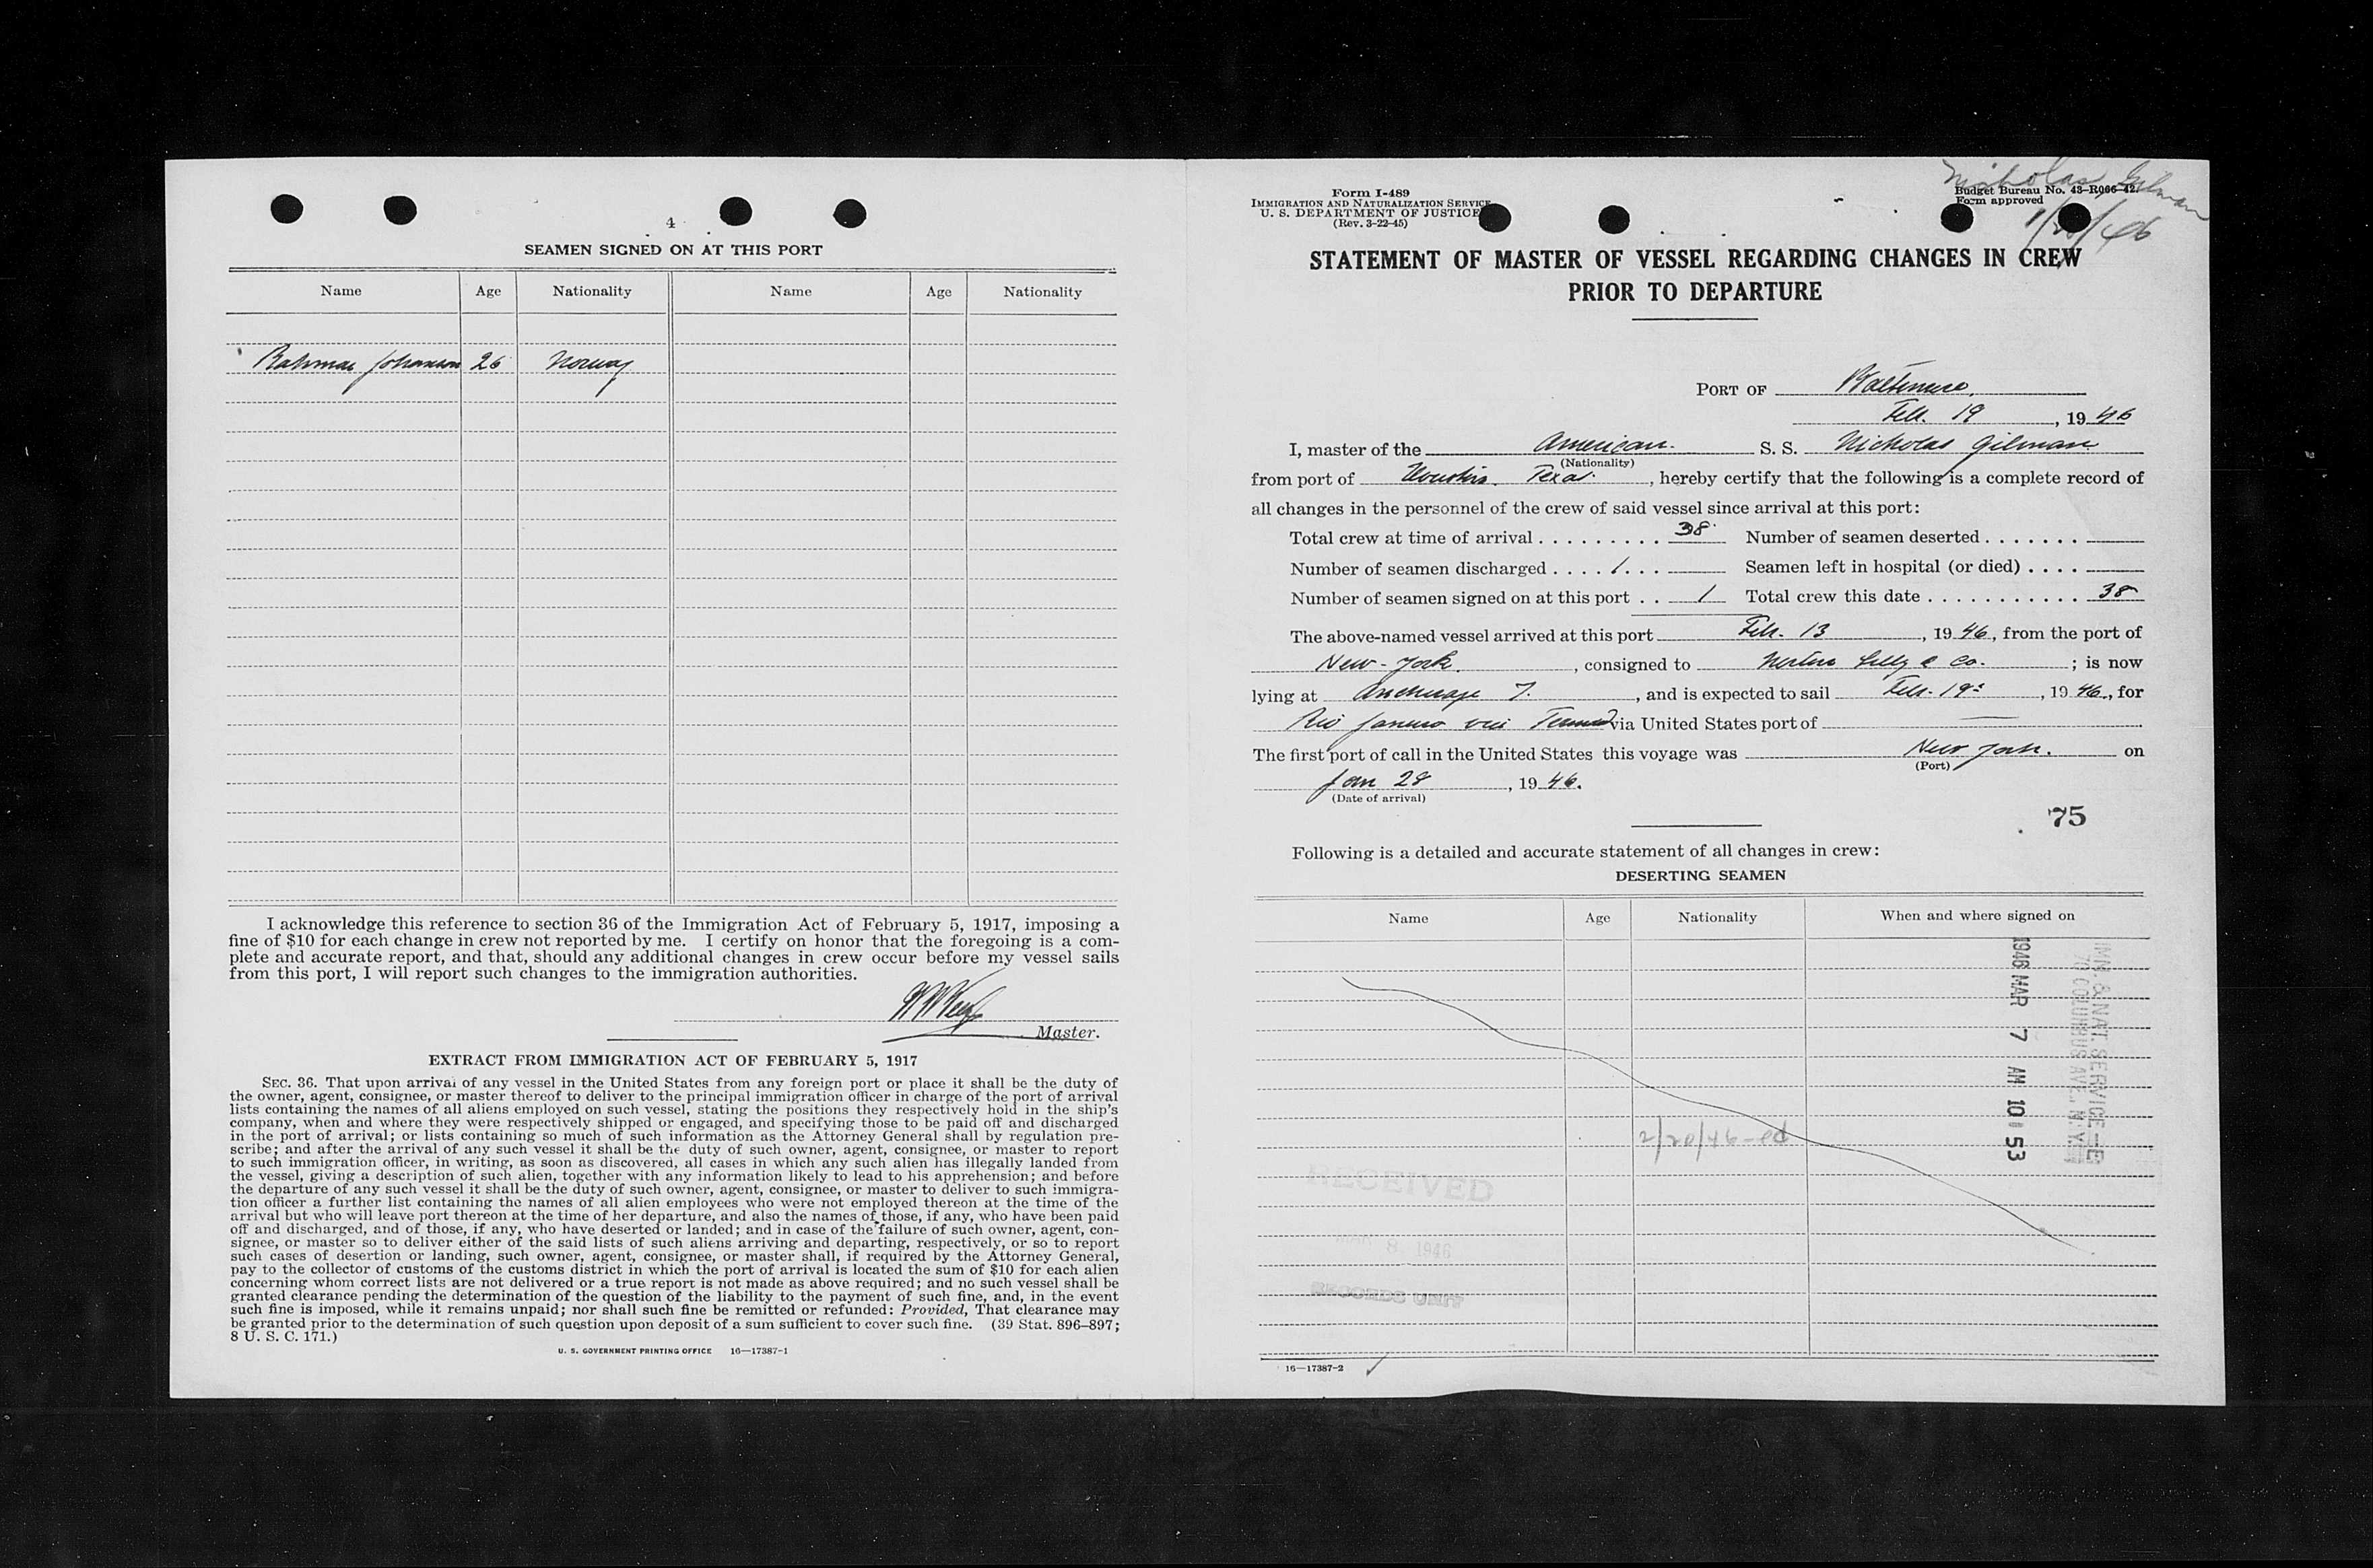 4
SEAMEN SIGNED ON AT THIS PORT
Name Age Nationality Name Age Nationality
26 Norway
I acknowledge this reference to section 36 of the Immigration Act of February 5, 1917, imposing a
fine of $10 for each change in crew not reported by me. I certify on honor that the foregoing is a com-
plete and accurate report, and that, should any additional changes in crew occur before my vessel sails
from this port, I will report such changes to the immigration authorities.
Master.
EXTRACT FROM IMMIGRATION ACT OF FEBRUARY 5, 1917
SEC. 36. That upon arrival of any vessel in the United States from any foreign port or place it shall be the duty of
the owner, agent, consignee, or master thereof to deliver to the principal immigration officer in charge of the port of arrival
lists containing the names of all aliens employed on such vessel, stating the positions they respectively hold in the ship's
company, when and where they were respectively shipped or engaged, and specifying those to be paid off and discharged
in the port of arrival; or lists containing so much of such information as the Attorney General shall by regulation pre-
scribe; and after the arrival of any such vessel it shall be the duty of such owner, agent, consignee, or master to report
to such immigration officer, in writing, as soon as discovered, all cases in which any such alien has illegally landed from
the vessel, giving a description of such alien, together with any information likely to lead to his apprehension; and before
the departure of any such vessel it shall be the duty of such owner, agent, consignee, or master to deliver to such immigra-
tion officer a further list containing the names of all alien employees who were not employed thereon at the time of the
arrival but who will leave port thereon at the time of her departure, and also the names of those, if any, who have been paid
off and discharged, and of those, if any, who have deserted or landed; and in case of the failure of such owner, agent, con-
signee, or master so to deliver either of the said lists of such aliens arriving and departing, respectively, or so to report
such cases of desertion or landing, such owner, agent, consignee, or master shall, if required by the Attorney General,
pay to the collector of customs of the customs district in which the port of arrival is located the sum of $10 for each alien
concerning whom correct lists are not delivered or a true report is not made as above required; and no such vessel shall be
granted clearance pending the determination of the question of the liability to the payment of such fine, and, in the event
such fine is imposed, while it remains unpaid; nor shall such fine be remitted or refunded: Provided, That clearance may
be granted prior to the determination of such question upon deposit of a sum sufficient to cover such fine. (39 Stat. 896–897;
8 U. S. C. 171.)
U. S. GOVERNMENT PRINTING OFFICE 16—17387-1
Form I-489
IMMIGRATION AND NATURALIZATION SERVICE
U. S. DEPARTMENT OF JUSTICE
(Rev. 3-22-45)
Nicholas Gilman
Budget Bureau No. 43-R066-42.
Form approved
STATEMENT OF MASTER OF VESSEL REGARDING CHANGES IN CREW
PRIOR TO DEPARTURE
PORT OF Baltimore,
Feb. 19, 1946
I, master of the American S. S. Nicholas Gilman
(Nationality)
from port of Houston, Texas, hereby certify that the following is a complete record of
all changes in the personnel of the crew of said vessel since arrival at this port:
Total crew at time of arrival 38 Number of seamen deserted
Number of seamen discharged 1 Seamen left in hospital (or died)
Number of seamen signed on at this port 1 Total crew this date 38
The above-named vessel arrived at this port Feb. 13, 1946, from the port of
New-York, consigned to Norton Lilly & Co.; is now
lying at Anchorage 7., and is expected to sail Feb. 19, 1946, for
Rio Janeiro via via United States port of —
The first port of call in the United States this voyage was New York. on
(Port)
Jan 28, 1946.
(Date of arrival)
75
Following is a detailed and accurate statement of all changes in crew:
DESERTING SEAMEN
Name Age Nationality When and where signed on
IMM. & NAT. SERVICE
70 COLUMBUS AVE., N.Y.
1946 MAR 7 AM 10 53
2/20/46-ed
RECEIVED
MAR 8 1946
RECORDS UNIT
16—17387-2